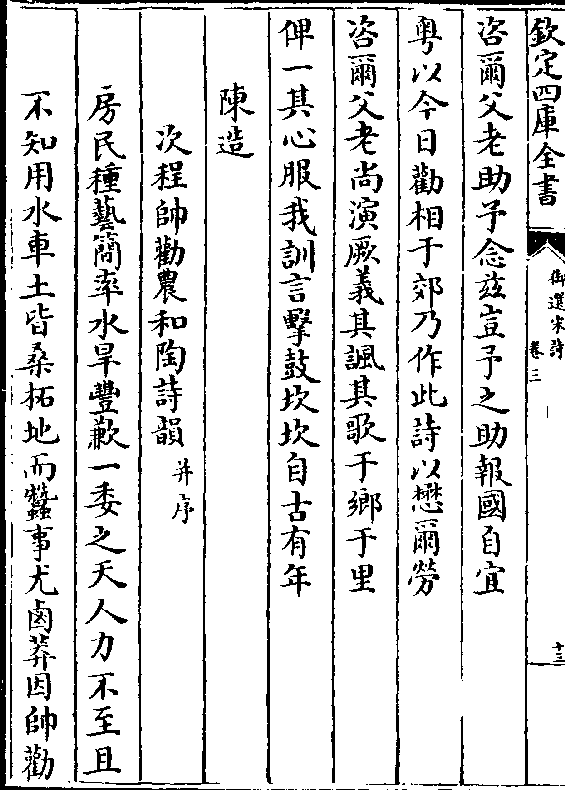 欽定四庫全書
御選宋詩
卷三
十三
咨爾父老助予念茲豈予之助報國自宜
粵以今日勸相于郊乃作此詩以懋爾勞
咨爾父老尚演厥義其諷其歌于鄉于里
俾一其心服我訓言擊鼓坎坎自古有年
陳造
次程帥勸農和陶詩韻并序
房民種藝簡率水旱豐歉一委之天人力不至且
不知用水車土皆桑柘地而蠶事尤鹵莽因帥勸